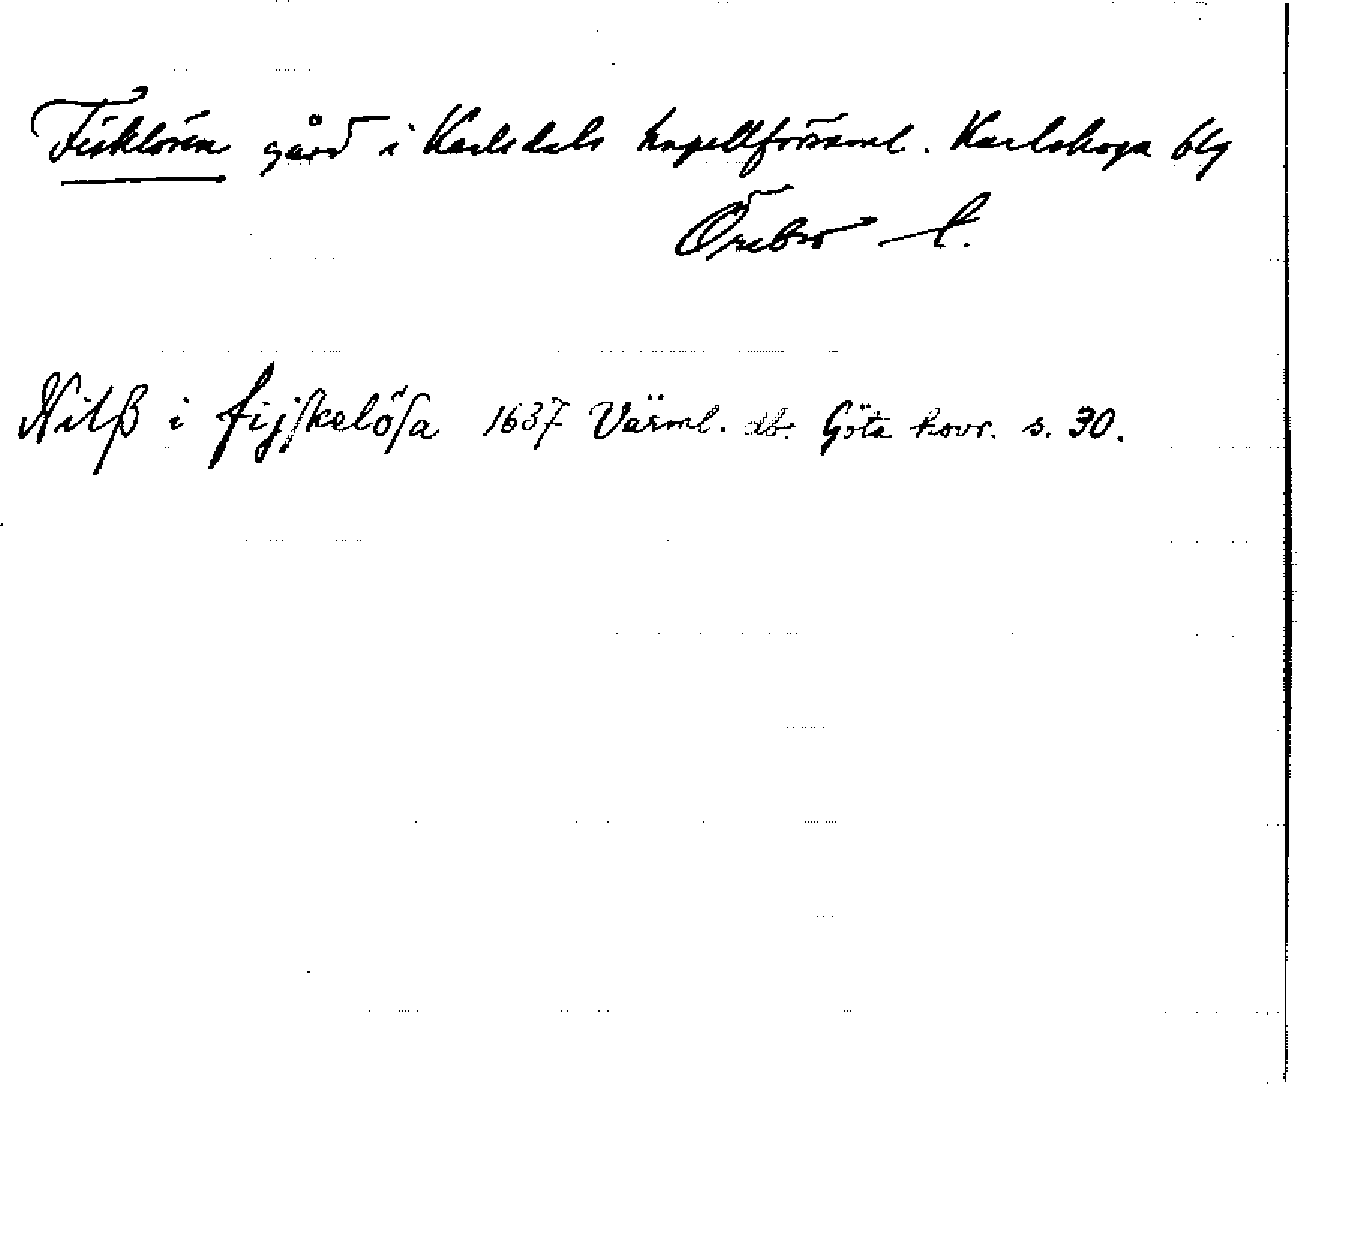 Fisklösen gård i Karlsdals kapellförsaml. Karlskoga blg
Örebro l.
Nilß i fijſkelöſa 1637 Värml. db. Göta hovr. s. 30.